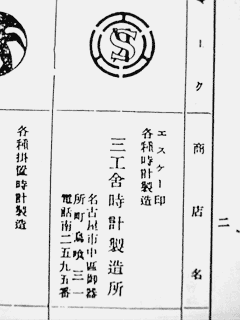 マーク
商店名
二、
S
エスケー印
各種時計製造
三工舍時計製造所
名古屋市中區御器
所町鳥喰三一
電話南二五九五番
各種掛置時計製造